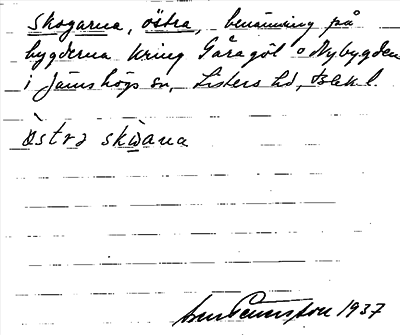 Skogarna, östra, benämning på
bygderna kring Gåragöl o Nybygden
i Jämshögs sn, Listers hd,
Östra skwana
1937